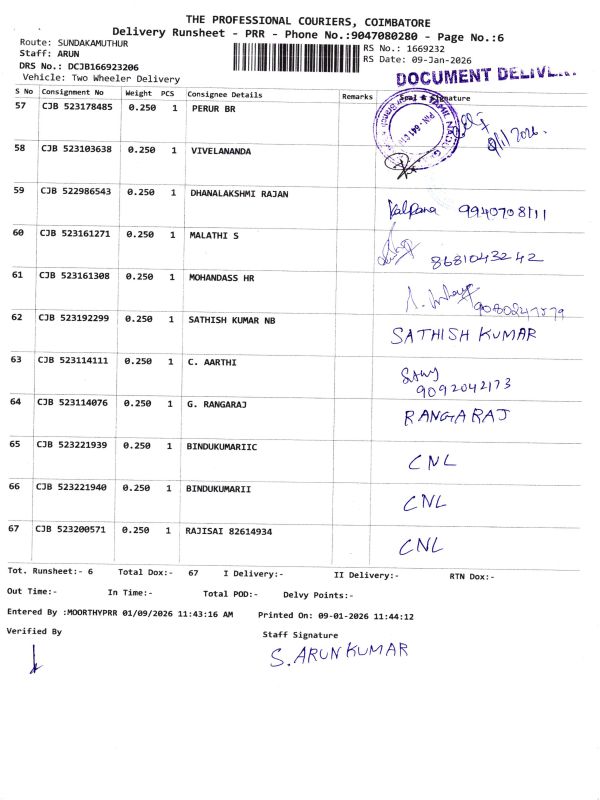 THE PROFESSIONAL COURIERS, COIMBATORE
Delivery Runsheet - PRR - Phone No.:9047080280 - Page No.:6
Route: SUNDAKAMUTHUR RS No.: 1669232
Staff: ARUN RS Date: 09-Jan-2026
DRS No.: DCJB166923206
Vehicle: Two Wheeler Delivery
DOCUMENT
S No Consignment No Weight PCS Consignee Details Remarks Seal & Signature
57 CJB 523178485 0.250 1 PERUR BR
58 CJB 523103638 0.250 1 VIVELANANDA
59 CJB 522986543 0.250 1 DHANALAKSHMI RAJAN Kalpana 9940708111
60 CJB 523161271 0.250 1 MALATHI S 8681043242
61 CJB 523161308 0.250 1 MOHANDASS HR
62 CJB 523192299 0.250 1 SATHISH KUMAR NB SATHISH KUMAR
63 CJB 523114111 0.250 1 C. AARTHI
9092042173
64 CJB 523114076 0.250 1 G. RANGARAJ RANGARAJ
65 CJB 523221939 0.250 1 BINDUKUMARIIC CNL
66 CJB 523221940 0.250 1 BINDUKUMARII CNL
67 CJB 523200571 0.250 1 RAJISAI 82614934 CNL
Tot. Runsheet:- 6 Total Dox:- 67 I Delivery:- II Delivery:- RTN Dox:-
Out Time:- In Time:- Total POD:- Delvy Points:-
Entered By :MOORTHYPRR 01/09/2026 11:43:16 AM Printed On: 09-01-2026 11:44:12
Verified By Staff Signature
S. ARUNKUMAR